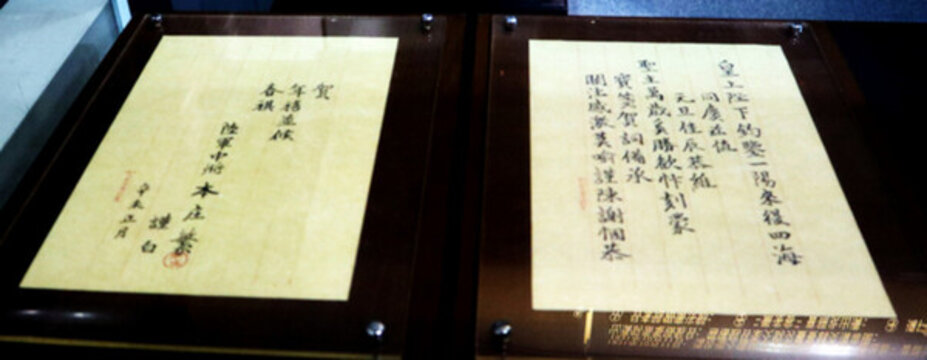 皇上陛下鈞鑒一陽來復四海
同慶並值
元旦佳辰恭維
聖主萬歲喜勝歡忭刻蒙
寶箋賀詞備承
關注感激莫喻謹陳謝悃恭
賀
年禧並候
春祺
陸軍中將 本庄繁
謹白
正月